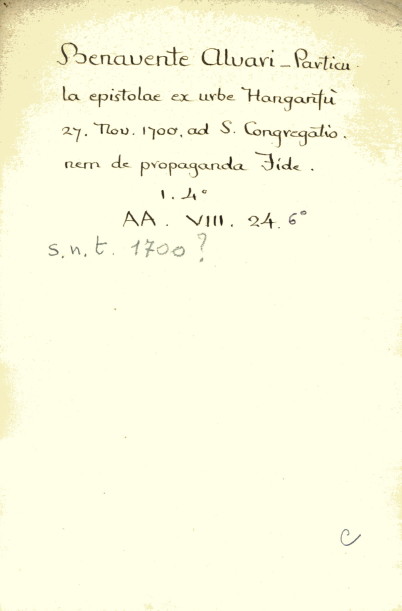 Benavente Alvari – Particu-
la epistolae ex urbe Hanganfù
27. Nov. 1700. ad S. Congregatio.
nem de propaganda Fide.
1. 4°
AA. VIII. 24. 6°
s.n.t. 1700?
C